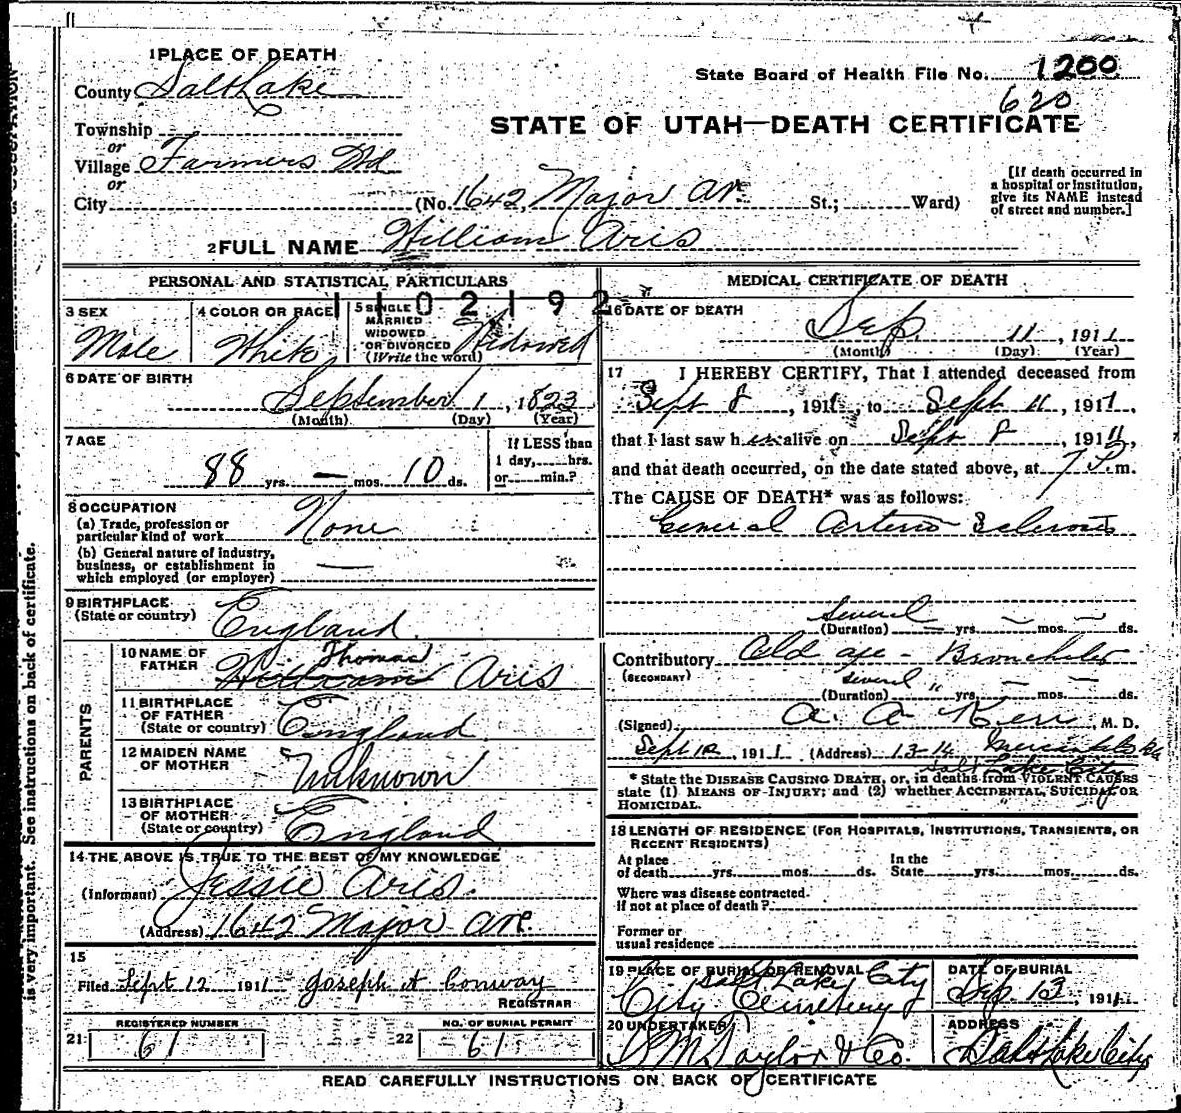 1 PLACE OF DEATH
County Salt Lake
State Board of Health File No. 1200
620
Township
or
Village Farmers Wd
or
STATE OF UTAH—DEATH CERTIFICATE
City (No. 1642 Major Av. St.; Ward)
[If death occurred in
a hospital or institution,
give its NAME instead
of street and number.]
2 FULL NAME William Aris
PERSONAL AND STATISTICAL PARTICULARS
1102192
3 SEX
Male
4 COLOR OR RACE
White
5 SINGLE
MARRIED
WIDOWED
OR DIVORCED
(Write the word)
Widowed
6 DATE OF BIRTH
September 1, 1823
(Month) (Day) (Year)
7 AGE
88 yrs. — mos. 10 ds.
If LESS than
1 day, hrs.
or min.?
8 OCCUPATION
(a) Trade, profession or
particular kind of work None
(b) General nature of industry,
business, or establishment in
which employed (or employer) —
9 BIRTHPLACE
(State or country) England
PARENTS
10 NAME OF
FATHER William Thomas Aris
11 BIRTHPLACE
OF FATHER
(State or country) England
12 MAIDEN NAME
OF MOTHER Unknown
13 BIRTHPLACE
OF MOTHER
(State or country) England
14 THE ABOVE IS TRUE TO THE BEST OF MY KNOWLEDGE
(Informant) Jessie Aris.
(Address) 1642 Major Ave.
15
Filed Sept 12 1911 Joseph A Conway
REGISTRAR
REGISTERED NUMBER
21 61
NO. OF BURIAL PERMIT
22 61
MEDICAL CERTIFICATE OF DEATH
16 DATE OF DEATH
Sep. 11, 1911
(Month) (Day) (Year)
17 I HEREBY CERTIFY, That I attended deceased from
Sept 8, 1911, to Sept 11, 1911,
that I last saw him alive on Sept 8, 1911,
and that death occurred, on the date stated above, at 7 P. m.
The CAUSE OF DEATH* was as follows:
General Arterio Sclerosis
Several
(Duration) — yrs. — mos. — ds.
Contributory Old age - Bronchitis
(SECONDARY)
several
(Duration) " yrs. — mos. — ds.
(Signed) A. A. Kerr M. D.
Sept 12, 1911 (Address) 13-14
Salt Lake City
* State the DISEASE CAUSING DEATH, or, in deaths from VIOLENT CAUSES
state (1) MEANS OF INJURY; and (2) whether ACCIDENTAL, SUICIDAL OR
HOMICIDAL.
18 LENGTH OF RESIDENCE (FOR HOSPITALS, INSTITUTIONS, TRANSIENTS, OR
RECENT RESIDENTS)
At place
of death yrs. mos. ds.
In the
State yrs. mos. ds.
Where was disease contracted.
If not at place of death?
Former or
usual residence
19 PLACE OF BURIAL OR REMOVAL
Salt Lake City
City Cemetery
DATE OF BURIAL
Sep. 13, 1911
20 UNDERTAKER
S. M. Taylor & Co.
ADDRESS
Salt Lake City
READ CAREFULLY INSTRUCTIONS ON BACK OF CERTIFICATE
is very important. See instructions on back of certificate.